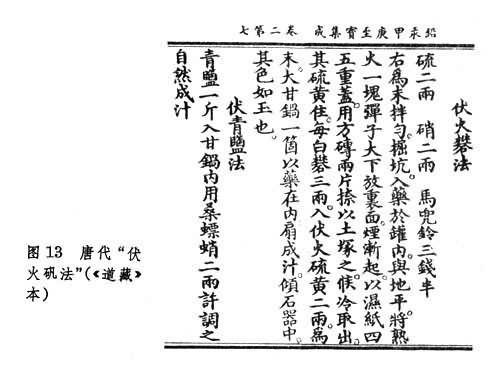 鉛汞甲庚至寶集成 卷二第七
伏火礬法
硫二兩 硝二兩 馬兜鈴三錢半
右爲末拌勻。掘坑。入藥於罐內。與地平。將熟
火一塊彈子大下放裏面。煙漸起。以濕紙四
五重蓋。用方磚兩片捺。以土塚之。候冷取出。
其硫黃住。每白礬三兩。入伏火硫黃二兩。爲
末。大甘鍋一箇以藥在內扇成汁。傾石器中。
其色如玉也。
伏青鹽法
青鹽一斤入甘鍋內用桑螵蛸二兩許調之
自然成汁
图13 唐代“伏
火矾法”（《道藏》
本）